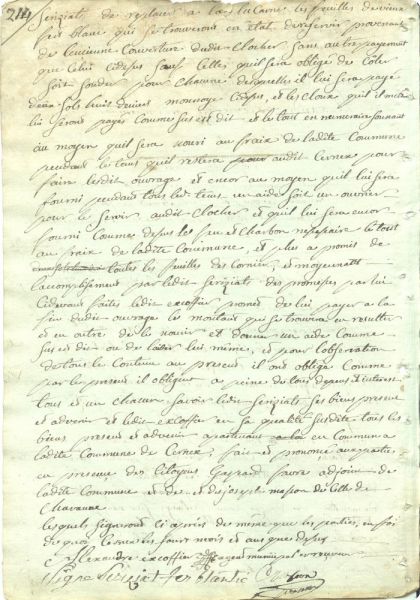 214
Senziat de replacer a la lucarne les feuilles de vieux
fert blanc qui se trouveront en etat de servir provenant
de lencienne Couverture dudit Clocher sans autre payement
que celui cidesus sauf celles quil sera obligé de
soit souder pour chacune desquelles il lui sera payé
deux sols huit deniers monoyage Cidesus, et les Cloux quil mettra
lui seront payés Comme sus est dit et le tout en numeraire sonnant
au moyen quil sera nouri au fraix de ladite Commune
pendant le tems quil restera audit Cernex pour
faire lesdit ouvrage et encor au moyen quil lui sera
fourni pendant tout les tems un aide soit un ouvrier
pour le servir audit Clocher et quil lui sera encor
fourni Comme desus le feu et Charbon nessessaire le tout
au fraix de ladite Commune, et plus a promis de
toutes les feuilles des Cornier, et moyennant
laccomplissement par ledit Senziat des promesses par lui
cidevant faites ledit excoffier promet de lui payer a la
fin dudit ouvrage le montant qui se trouvera en resulter
et en outre de le nourir et donner un aide Comme
sus est dit ou de laider lui même, et pour lobservation
de tout le Contenu au present il ont obligé Comme
par le present il obligent a peine de tous depens et interest
tous et un chacun savoir ledit Senziat ses biens present
et advenir et ledit excoffier en sa qualité susdite tous les
biens present et advenir apartenant en Commun a
ladite Commune de Cernex, fait et prononcé aux parties
en presence des Citoyens Gaspard favre adjoint de
ladite Commune et de et de joseph masson de
Chavanne
lesquels signeront ci après de même que les parties, en foi
de quoi
Alexandre excoffier agent municipal
Signe Senziat ferblantie